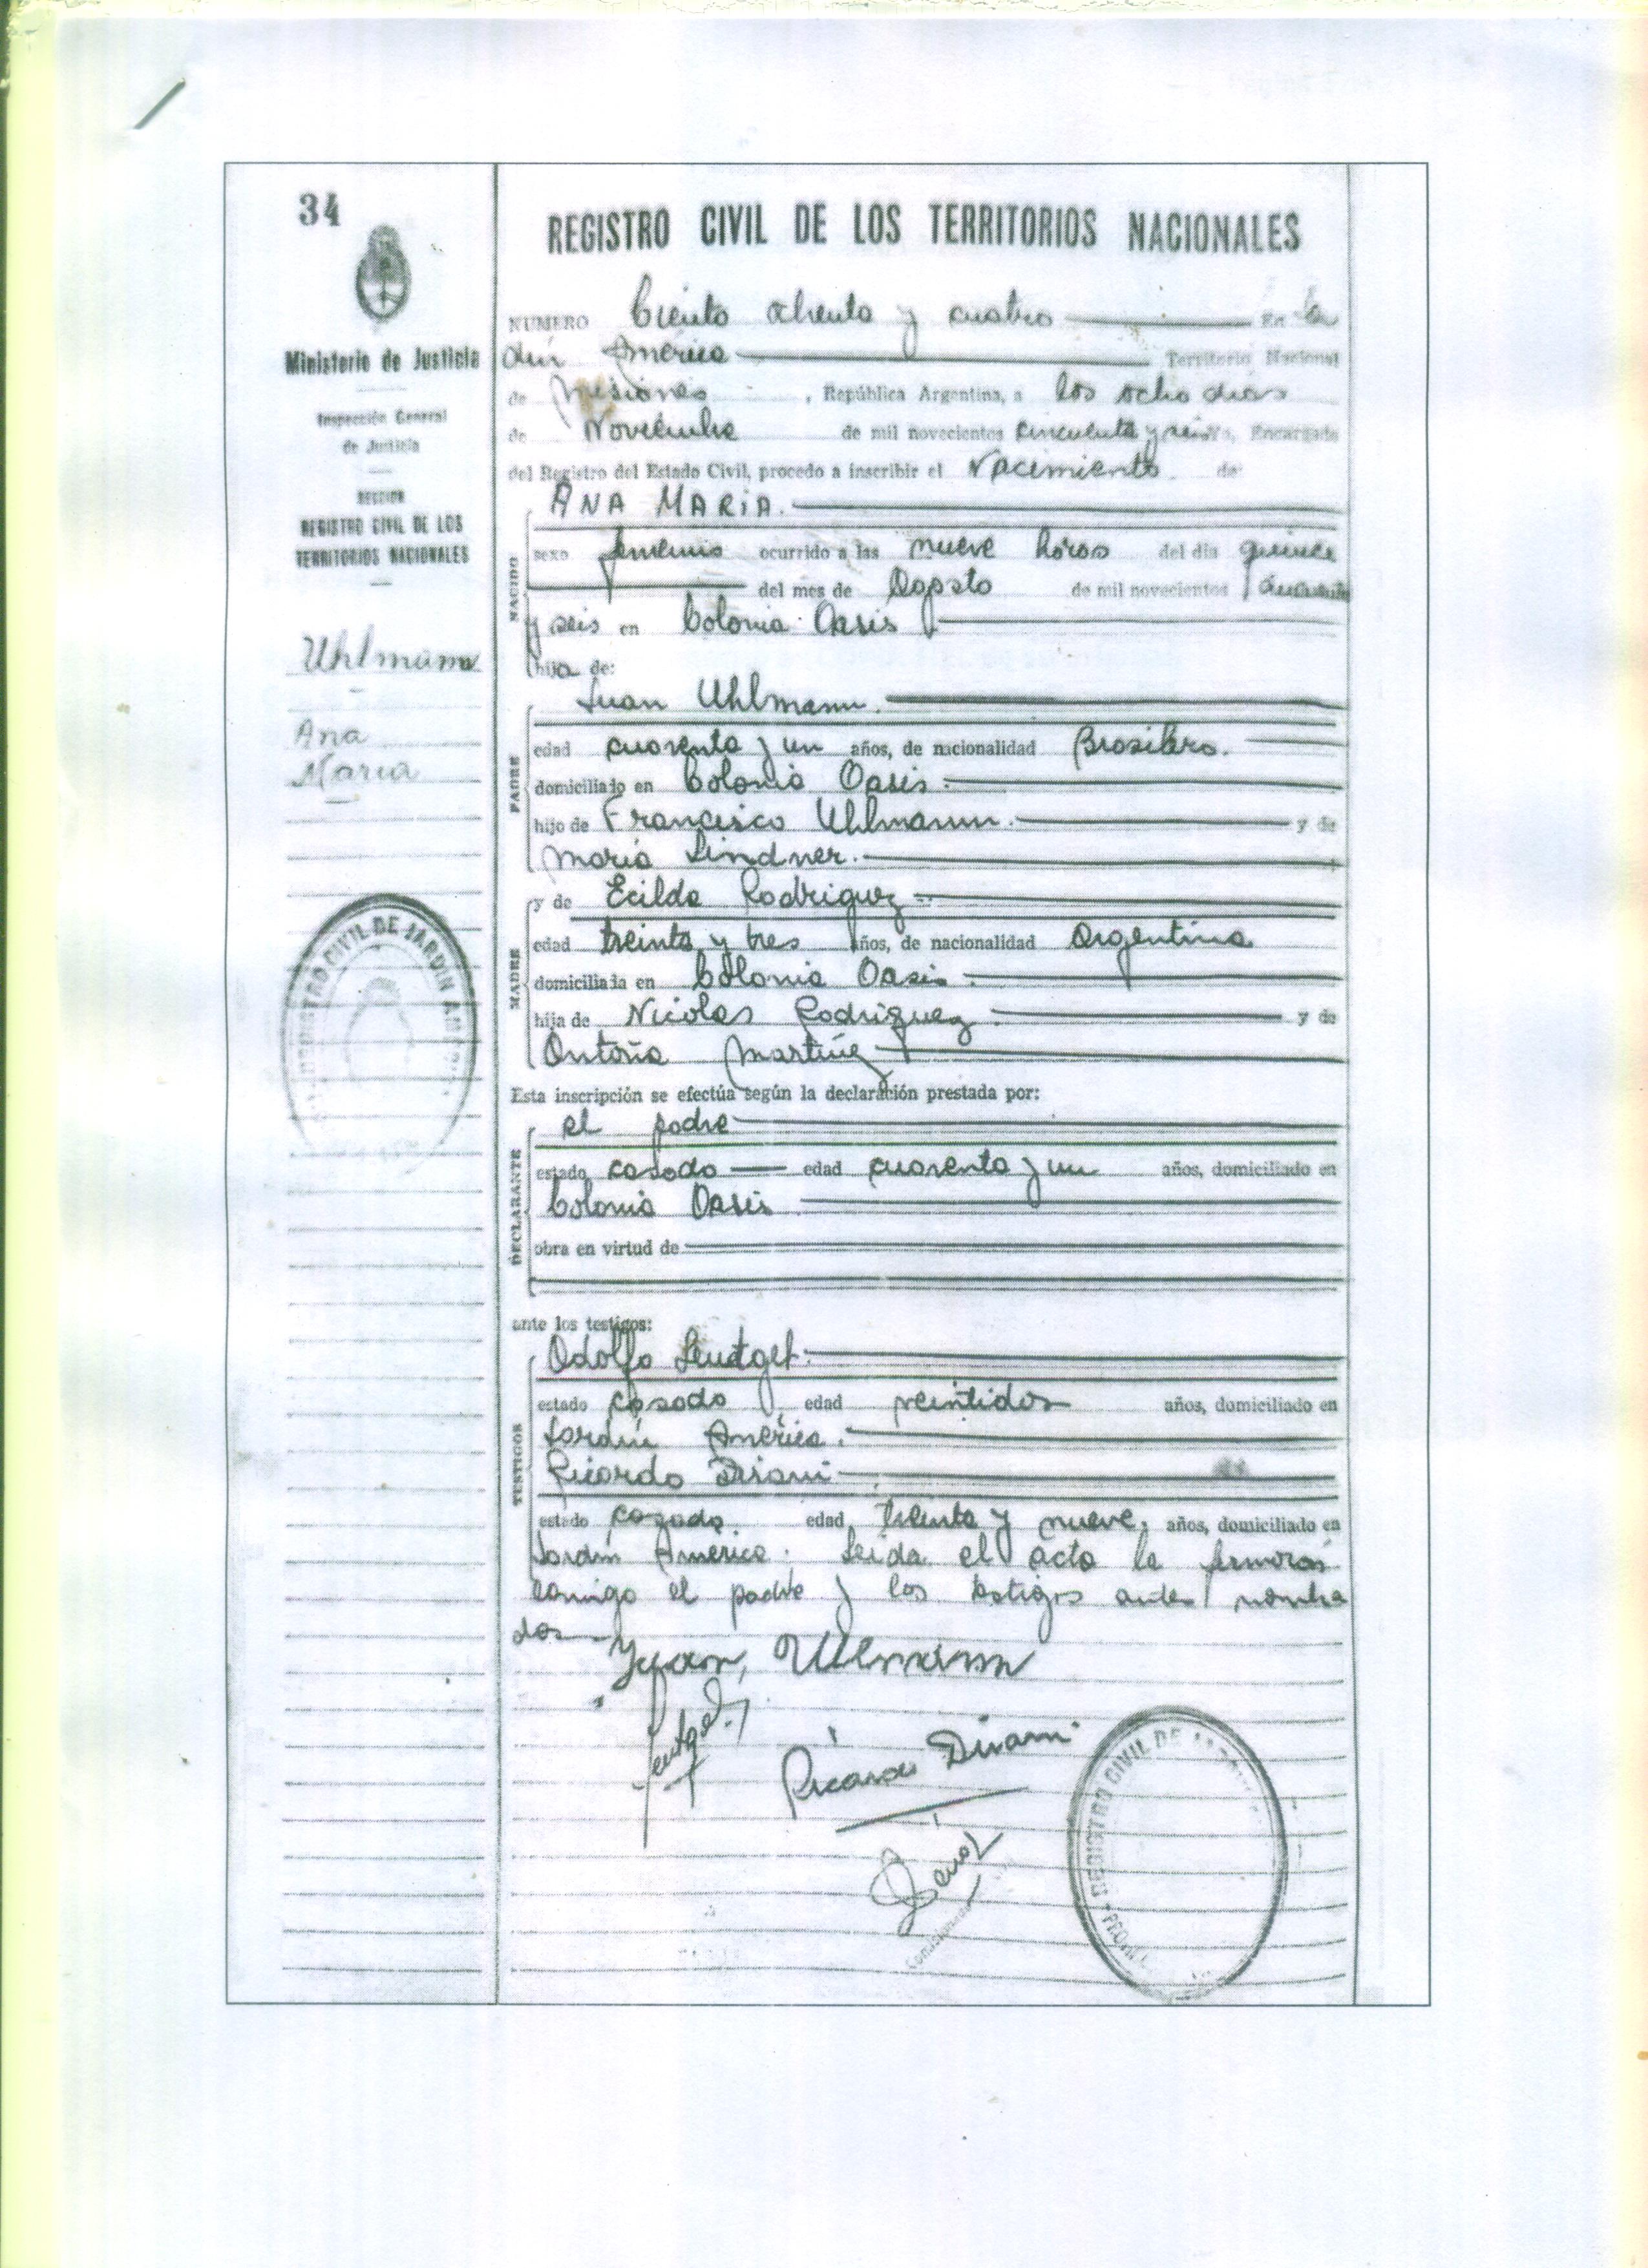 34
Ministerio de Justicia
Inspección General
de Justicia
SECCION
REGISTRO CIVIL DE LOS
TERRITORIOS NACIONALES
Uhlmann
Ana
Maria
REGISTRO CIVIL DE JARDIN AM
REGISTRO CIVIL DE LOS TERRITORIOS NACIONALES
NUMERO Ciento ochenta y cuatro En
din America Territorio Nacional
de Misiones , República Argentina, a los ocho dias
de Noviembre de mil novecientos cincuenta y seis Encargado
del Registro del Estado Civil, procedo a inscribir el Nacimiento de
ANA MARIA.
NACIDO
sexo femenino ocurrido a las nueve horas del dia quince
del mes de Agosto de mil novecientos cincuenta
y seis en Colonia Oasis
hija de:
PADRE
Juan Uhlmann.
edad cuarenta y un años, de nacionalidad Brasilero.
domiciliado en Colonia Oasis.
hijo de Francisco Uhlmann. y de
Maria Lindner.
MADRE
y de Ecilda Rodriguez
edad treinta y tres años, de nacionalidad Argentina
domiciliada en Colonia Oasis
hija de Nicolas Rodriguez y de
Antonia Martinez
Esta inscripción se efectúa según la declaración prestada por:
DECLARANTE
el padre
estado casado edad cuarenta y un años, domiciliado en
Colonia Oasis
obra en virtud de
ante los testigos:
TESTIGOS
Adolfo
estado casado edad veintidos años, domiciliado en
Jardin America.
Ricardo Disani
estado casado edad treinta y nueve. años, domiciliado en
Jardin America. Leida el acta la firmaran
conmigo el padre y los testigos antes nombra
dos
Juan, Uhlmann
Ricardo Disani
REGISTRO CIVIL DE